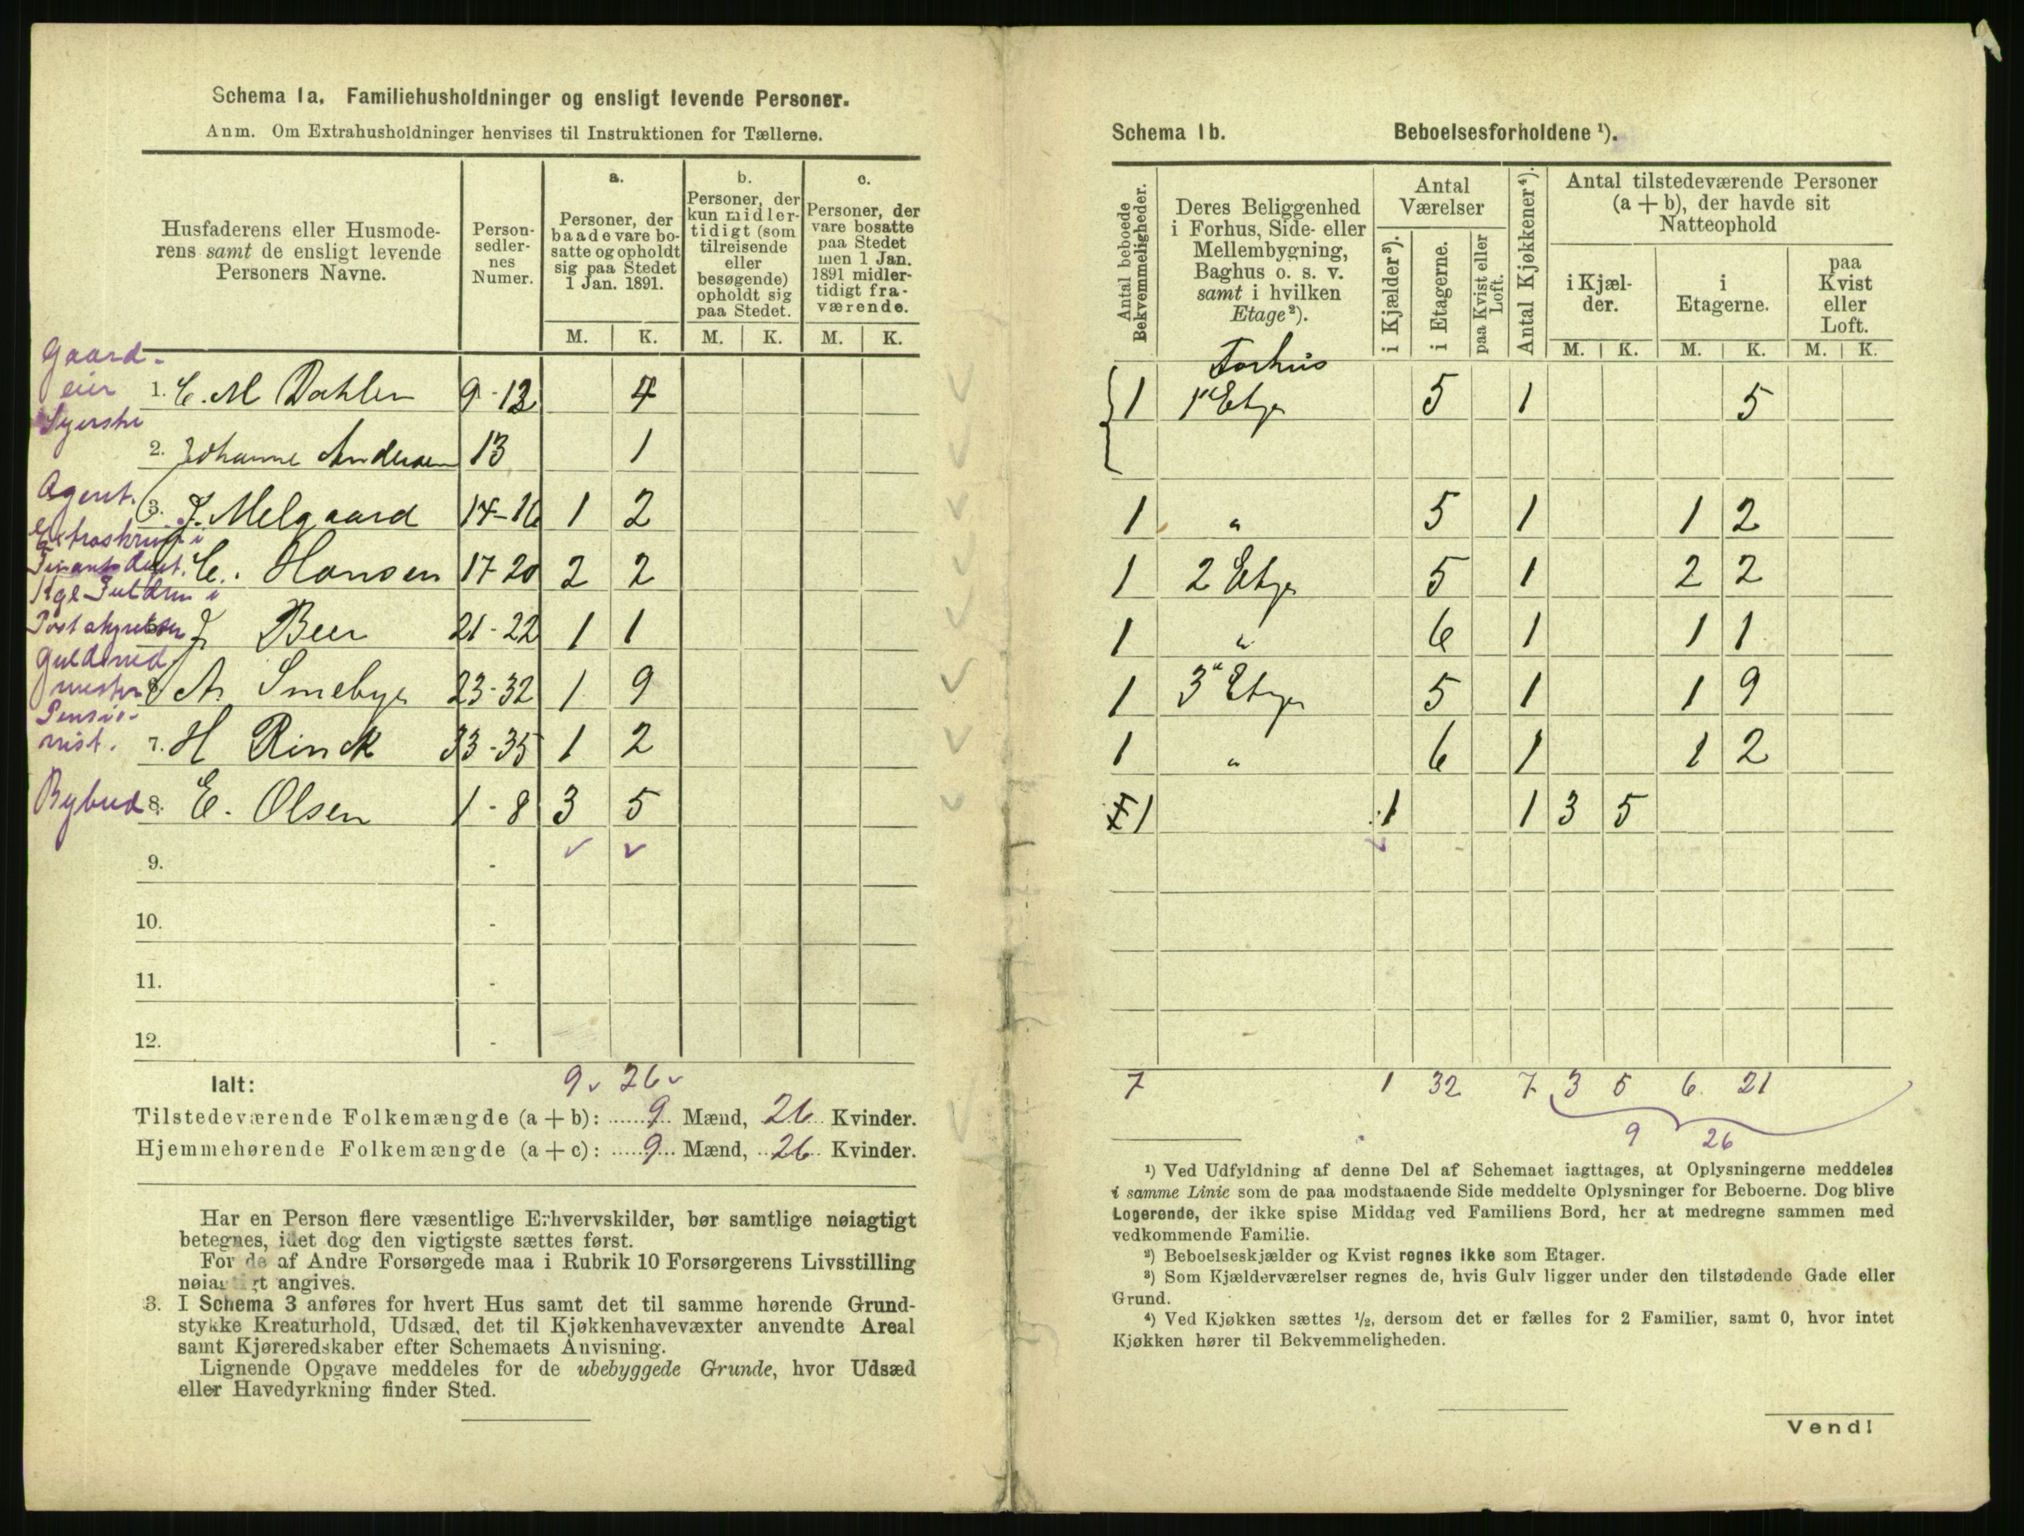 Schema 1a. Familiehusholdninger og ensligt levende Personer.
Anm. Om Extrahusholdninger henvises til Instruktionen for Tællerne.
Husfaderens eller Husmoderens samt de ensligt levende Personers Navne.
Personsedlernes Numer.
a. Personer, der baade vare bosatte og opholdt sig paa Stedet 1 Jan. 1891.
b. Personer, der kun midlertidigt (som tilreisende eller besøgende) opholdt sig paa Stedet.
c. Personer, der vare bosatte paa Stedet men 1 Jan. 1891 midlertidigt fraværende.
M. K. M. K. M. K.
Gaardeier 1. C. M Dahlen 9-12 4
Syerske 2. Johanne Andersen 13 1
Agent. 3. J. Melgaard 14-16 1 2
C. Hansen 17-20 2 2
J. Beer 21-22 1 1
Guldsmed mester A. Smebye 23-32 1 9
Pensionist. 7. H Rinck 33-35 1 2
Bybud 8. E. Olsen 1-8 3 5
9. -
10.
11. -
12. -
Ialt: 9 26
Tilstedeværende Folkemængde (a + b): 9 Mænd, 26 Kvinder.
Hjemmehørende Folkemængde (a + c): 9 Mænd, 26 Kvinder.
Har en Person flere væsentlige Erhvervskilder, bør samtlige nøiagtigt
betegnes, idet dog den vigtigste sættes først.
For de af Andre Forsørgede maa i Rubrik 10 Forsørgerens Livsstilling
nøiagtigt angives.
3. I Schema 3 anføres for hvert Hus samt det til samme hørende Grund-
stykke Kreaturhold, Udsæd, det til Kjøkkenhavevæxter anvendte Areal
samt Kjøreredskaber efter Schemaets Anvisning.
Lignende Opgave meddeles for de ubebyggede Grunde, hvor Udsæd
eller Havedyrkning finder Sted.
Schema 1b. Beboelsesforholdene ¹).
Antal beboede Bekvemmeligheder.
Deres Beliggenhed i Forhus, Side- eller Mellembygning, Baghus o. s. v. samt i hvilken Etage²).
Antal Værelser
i Kjælder³). i Etagerne. paa Kvist eller Loft.
Antal Kjøkkener⁴).
Antal tilstedeværende Personer (a + b), der havde sit Natteophold
i Kjælder. i Etagerne. paa Kvist eller Loft.
M. K. M. K. M. K.
Forhus
1 1ʳ Etge 5 1 5
1 " 5 1 1 2
1 2 Etge 5 1 2 2
1 " 6 1 1 1
1 3" Etge 5 1 1 9
1 " 6 1 1 2
1 1 1 3 5
7 1 32 7 3 5 6 21
9 26
¹) Ved Udfyldning af denne Del af Schemaet iagttages, at Oplysningerne meddeles
i samme Linie som de paa modstaaende Side meddelte Oplysninger for Beboerne. Dog blive
Logerende, der ikke spise Middag ved Familiens Bord, her at medregne sammen med
vedkommende Familie.
²) Beboelseskjælder og Kvist regnes ikke som Etager.
³) Som Kjælderværelser regnes de, hvis Gulv ligger under den tilstødende Gade eller
Grund.
⁴) Ved Kjøkken sættes ½, dersom det er fælles for 2 Familier, samt 0, hvor intet
Kjøkken hører til Bekvemmeligheden.
Vend!